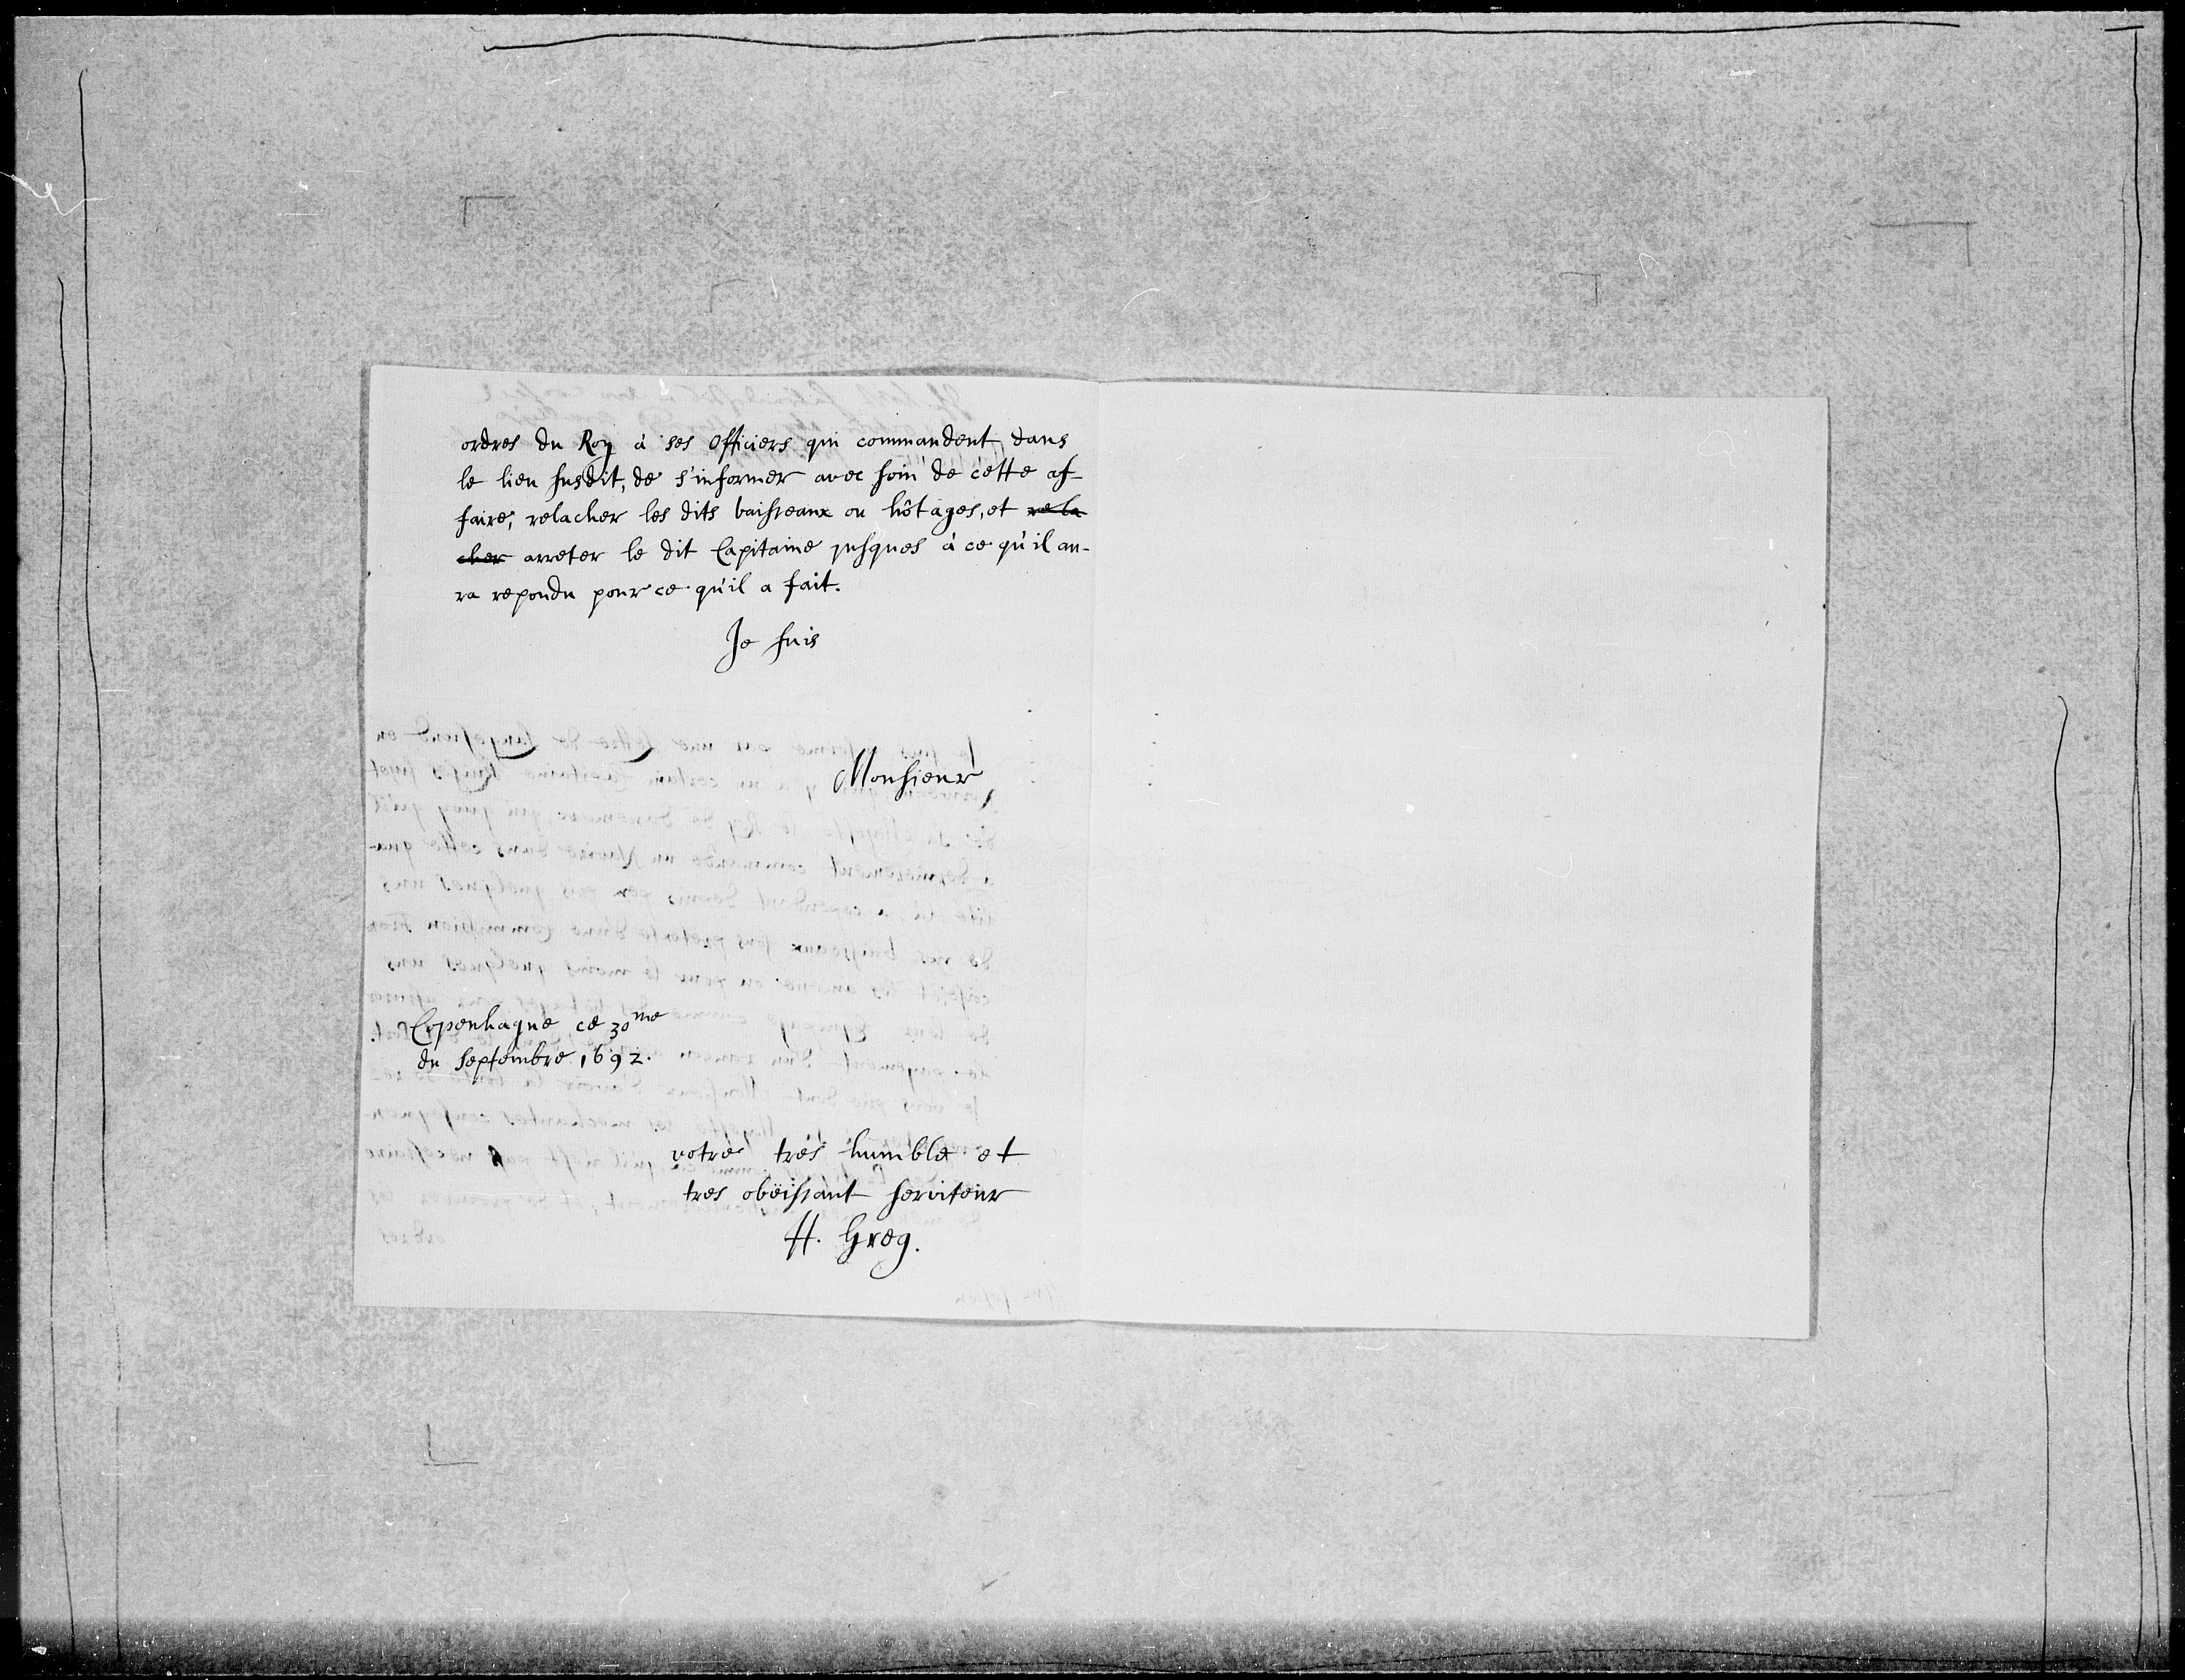 ordres du Roy à ses Officiers qui commandent dans
le lieu susdit, de s'informer avec soin de cette af-
faire, relacher les dits vaisseaux ou hôtages, et rela
cher arreter le dit Capitaine jusques à ce qu'il au-
ra repondu pour ce qu'il a fait.
Je suis
Monsieur
Copenhague ce 30me
du Septembre 1692.
votre trés humble et
tres obëissant serviteur
H. Greg.